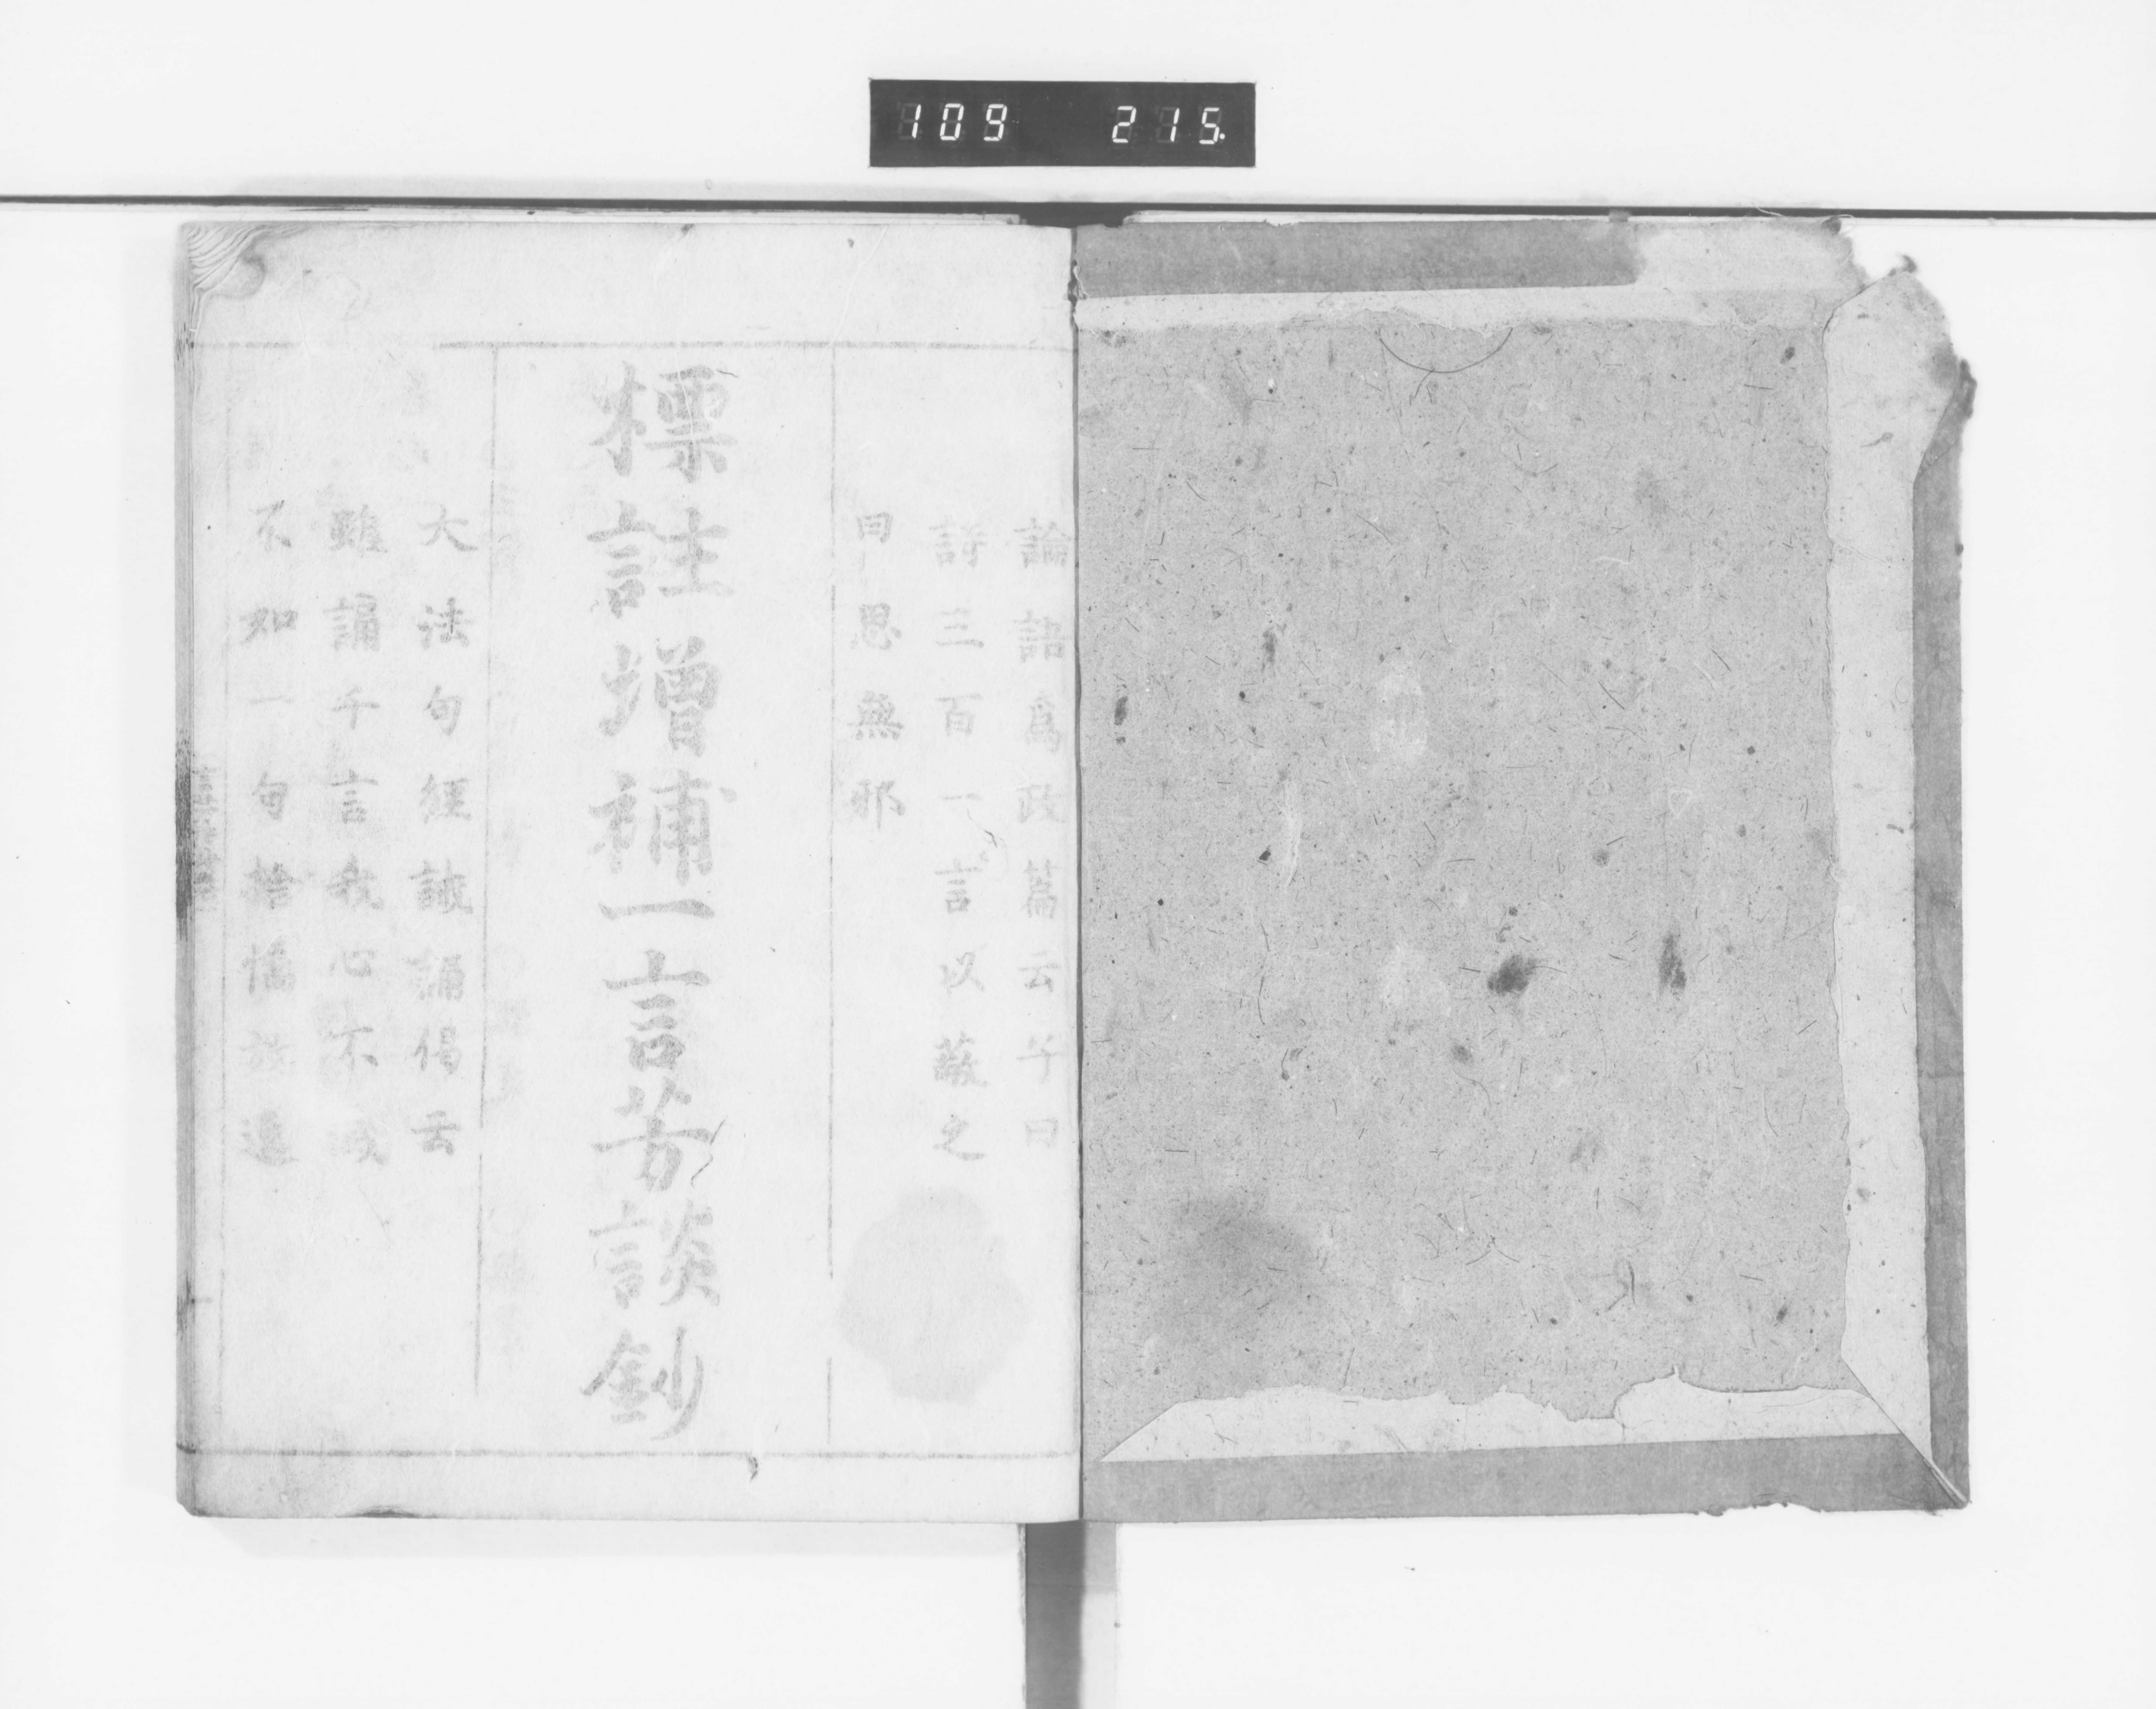 109 215.
論語爲政篇云子曰
詩三百一言以蔽之
曰思無邪
標註增補一言芳談鈔
大法句經誡誦偈云
雖誦千言我心不滅
不如一句捨憍放逸